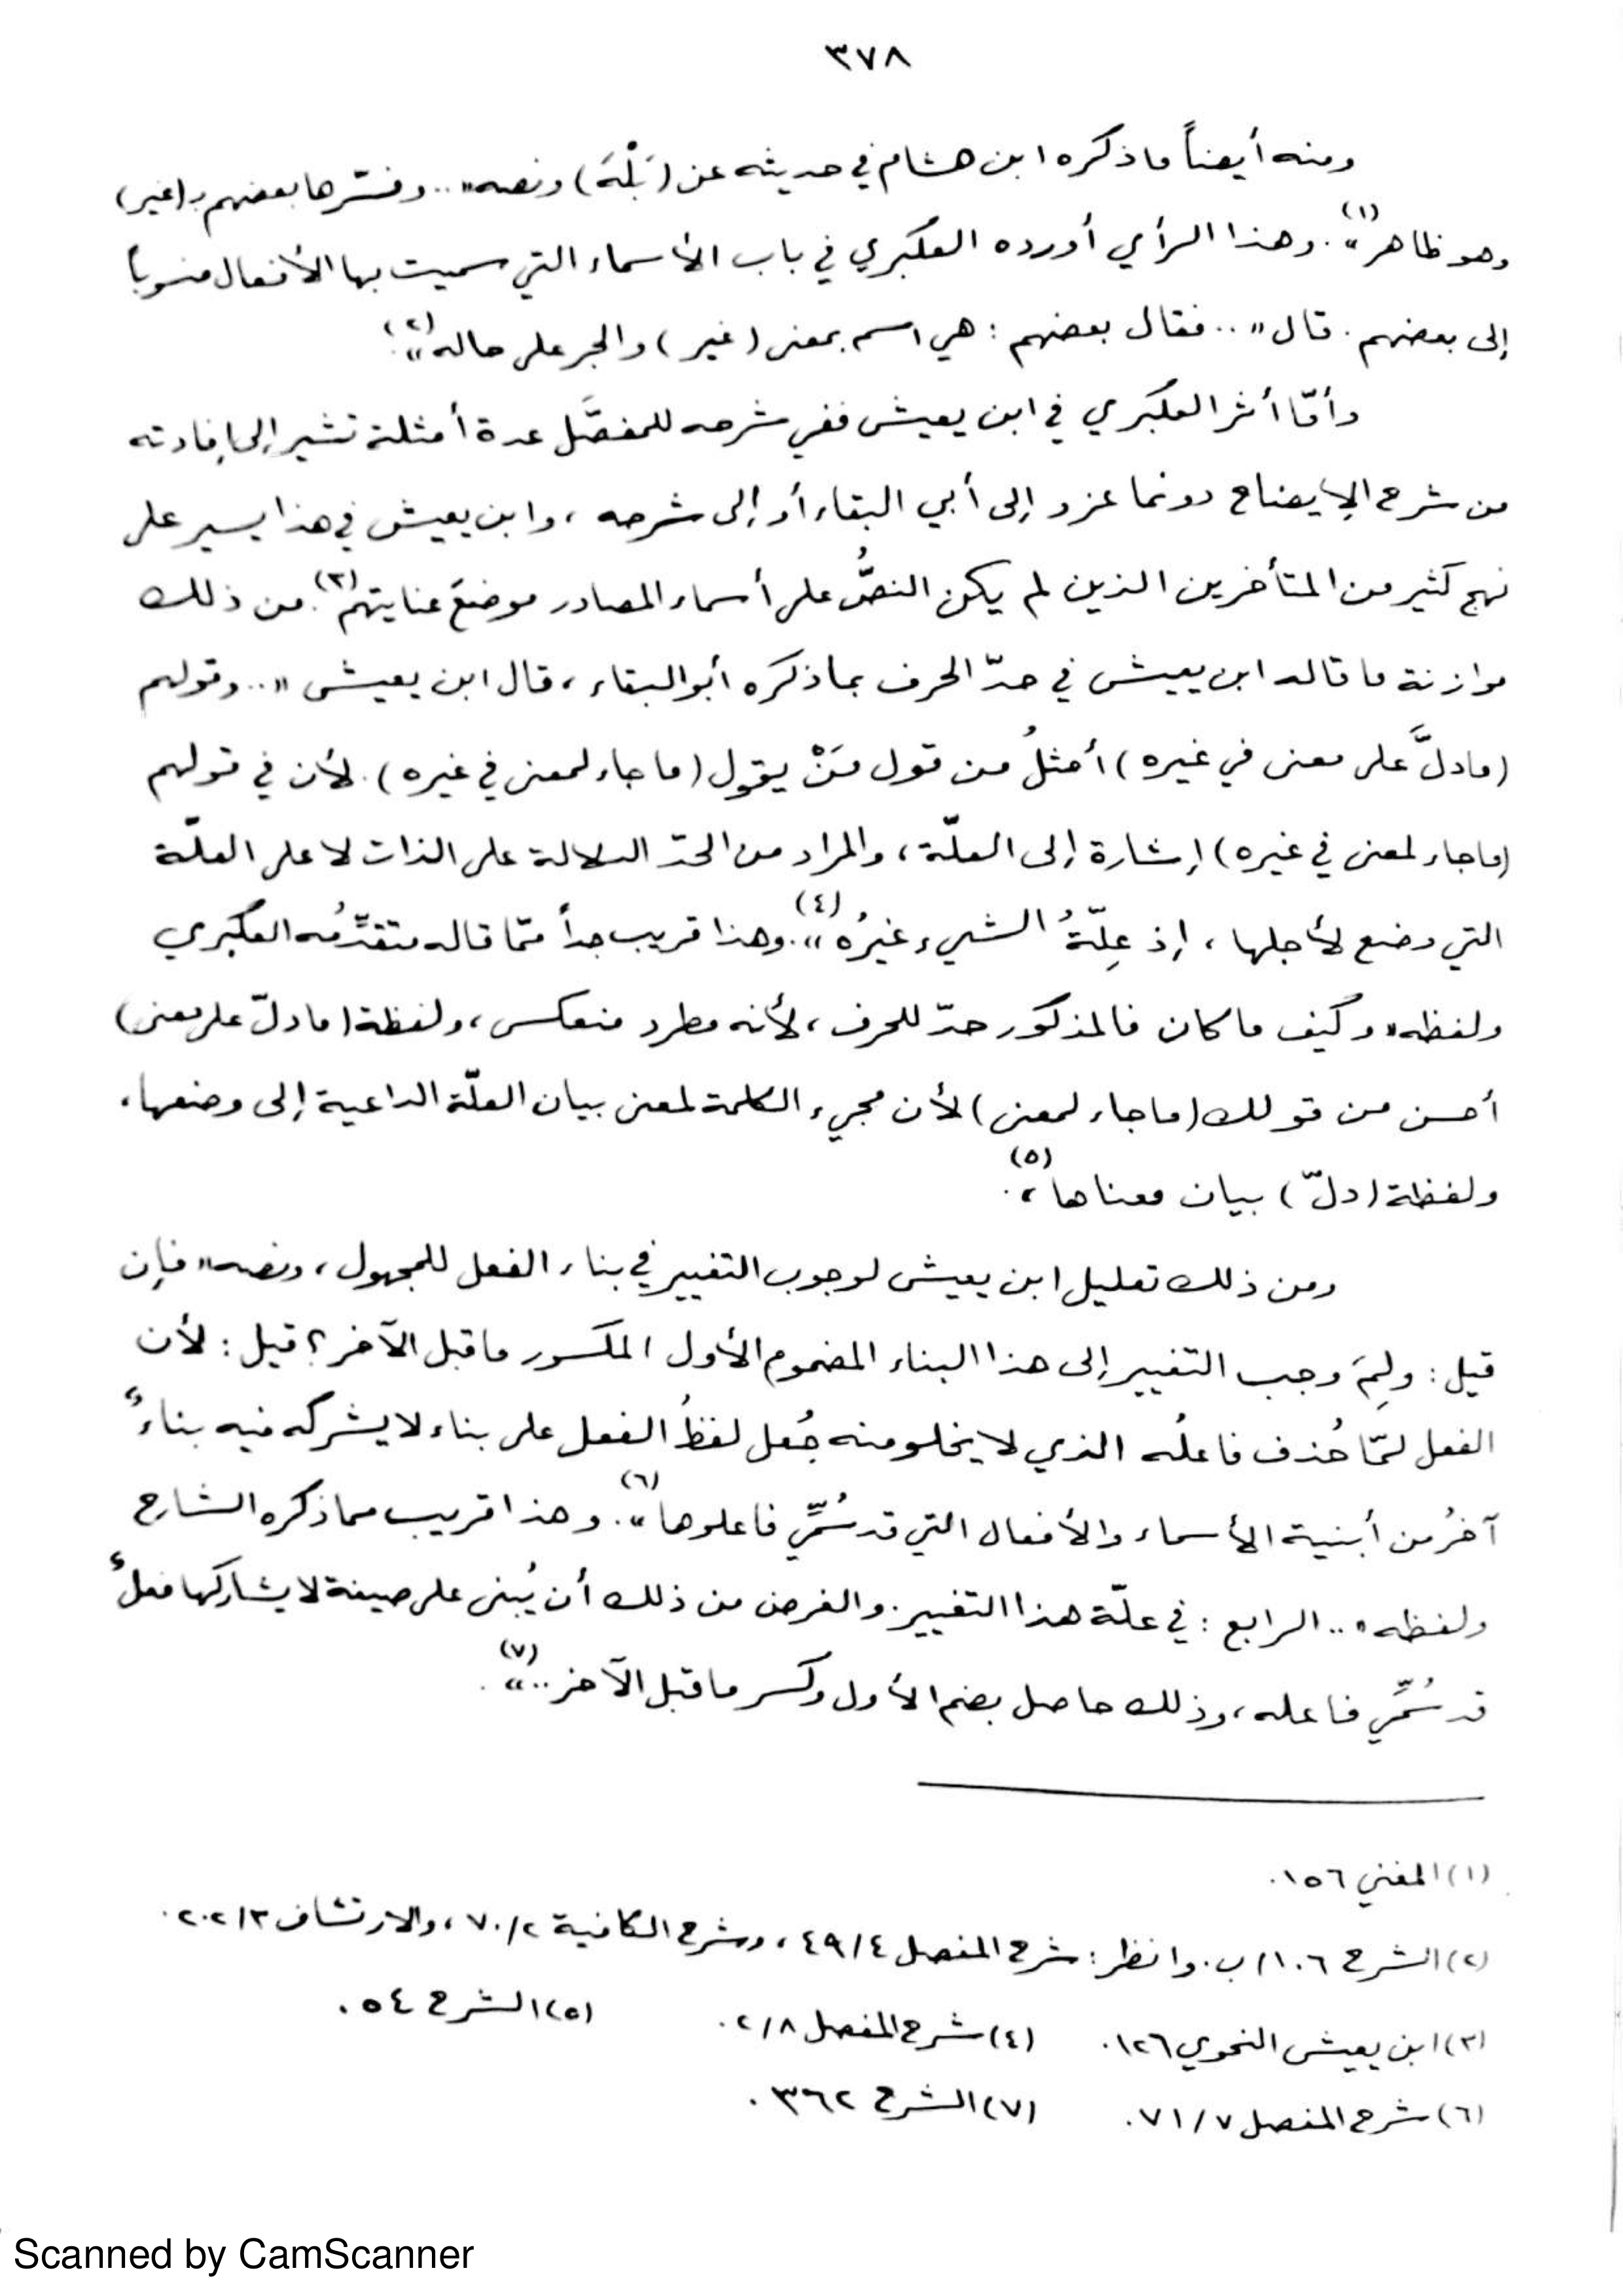 ٣٧٨
ومنه أيضاً ما ذكره ابن هشام في حديثه عن (بَلْهَ) ونصه «.. وفسّرها بعضهم بـ(غير)
وهو ظاهر»(١). وهذا الرأي أورده العكبري في باب الأسماء التي سميت بها الأفعال منسوباً
إلى بعضهم. قال «.. فقال بعضهم: هي اسم بمعنى (غير) والجر على حاله»(٢).
وأمّا أثر العكبري في ابن يعيش ففي شرحه للمفصَّل عدة أمثلة تشير إلى إفادته
من شرح الإيضاح دونما عزو إلى أبي البقاء أو إلى شرحه، وابن يعيش في هذا يسير على
نهج كثير من المتأخرين الذين لم يكن النصُّ على أسماء المصادر موضعَ عنايتهم(٣). من ذلك
موازنة ما قاله ابن يعيش في حدّ الحرف بما ذكره أبو البقاء، قال ابن يعيش «.. وقولهم
(ما دلَّ على معنى في غيره) أمثلُ من قول مَنْ يقول (ما جاء لمعنى في غيره). لأن في قولهم
(ما جاء لمعنى في غيره) إشارة إلى العلّة، والمراد من الحدّ الدلالة على الذات لا على العلّة
التي وضع لأجلها، إذ عِلّةُ الشيء غيرُه»(٤). وهذا قريب جداً ممّا قاله متقدِّمُه العكبري
ولفظه «وكيف ما كان فالمذكور حدّ للحرف، لأنه مطرد منعكس، ولفظة (ما دلّ على معنى)
أحسن من قولك (ما جاء لمعنى) لأن مجيء الكلمة لمعنى بيان العلّة الداعية إلى وضعها،
ولفظة (دلّ) بيان معناها»(٥).
ومن ذلك تعليل ابن يعيش لوجوب التغيير في بناء الفعل للمجهول، ونصه «فإن
قيل: ولِمَ وجب التغيير إلى هذا البناء المضموم الأول المكسور ما قبل الآخر؟ قيل: لأن
الفعل لمّا حُذف فاعلُه الذي لا يخلو منه جُعل لفظُ الفعل على بناء لا يشركه فيه بناءٌ
آخرُ من أبنية الأسماء والأفعال التي قد سُمِّي فاعلوها»(٦). وهذا قريب مما ذكره الشارح
ولفظه «.. الرابع: في علّة هذا التغيير. والغرض من ذلك أن يُبنى على صيغة لا يشاركها فعلٌ
قد سُمِّي فاعله، وذلك حاصل بضم الأول وكسر ما قبل الآخر..»(٧).
(١) المغني ١٥٦.
(٢) الشرح ١٠٦/ب. وانظر: شرح المفصل ٤٩/٤، وشرح الكافية ٧٠/٢، والارتشاف ٢٠٢/٣.
(٣) ابن يعيش النحوي ١٢٦. (٤) شرح المفصل ٢/٨. (٥) الشرح ٥٤.
(٦) شرح المفصل ٧١/٧. (٧) الشرح ٣٦٢.
Scanned by CamScanner